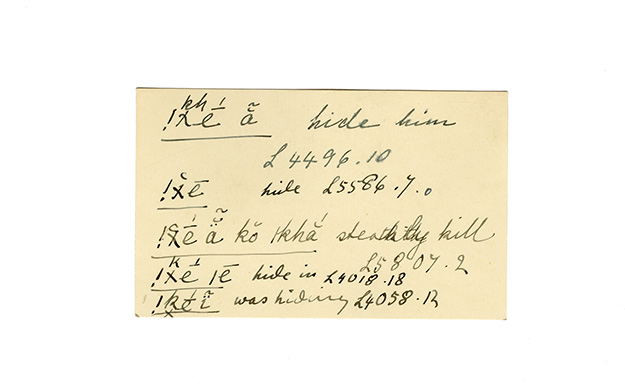 kh
!χé ã hide him
L 4496.10
!χē hide L5586.7.0
!χé ã kŏ |khá stealthily kill
L5807.2
!χé |ē hide in L4018.18
was hiding L4058.12